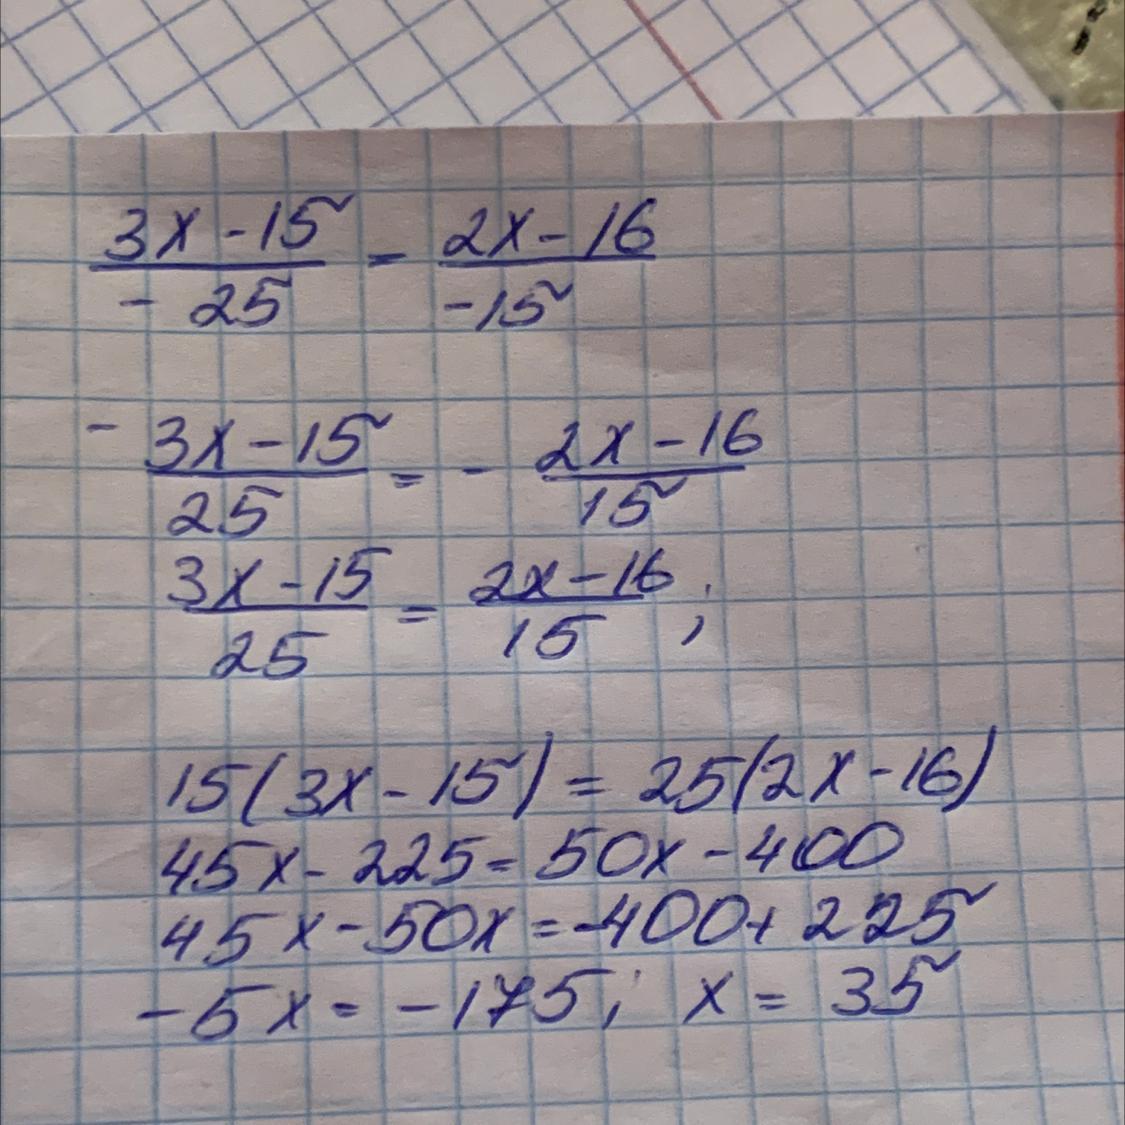 (3x - 15)/(- 25) = (2x - 16)/(-15)
- (3x - 15)/25 = - (2x - 16)/15
(3x - 15)/25 = (2x - 16)/15 ;
15(3x - 15) = 25(2x - 16)
45x - 225 = 50x - 400
45x - 50x = -400 + 225
-5x = -175; x = 35